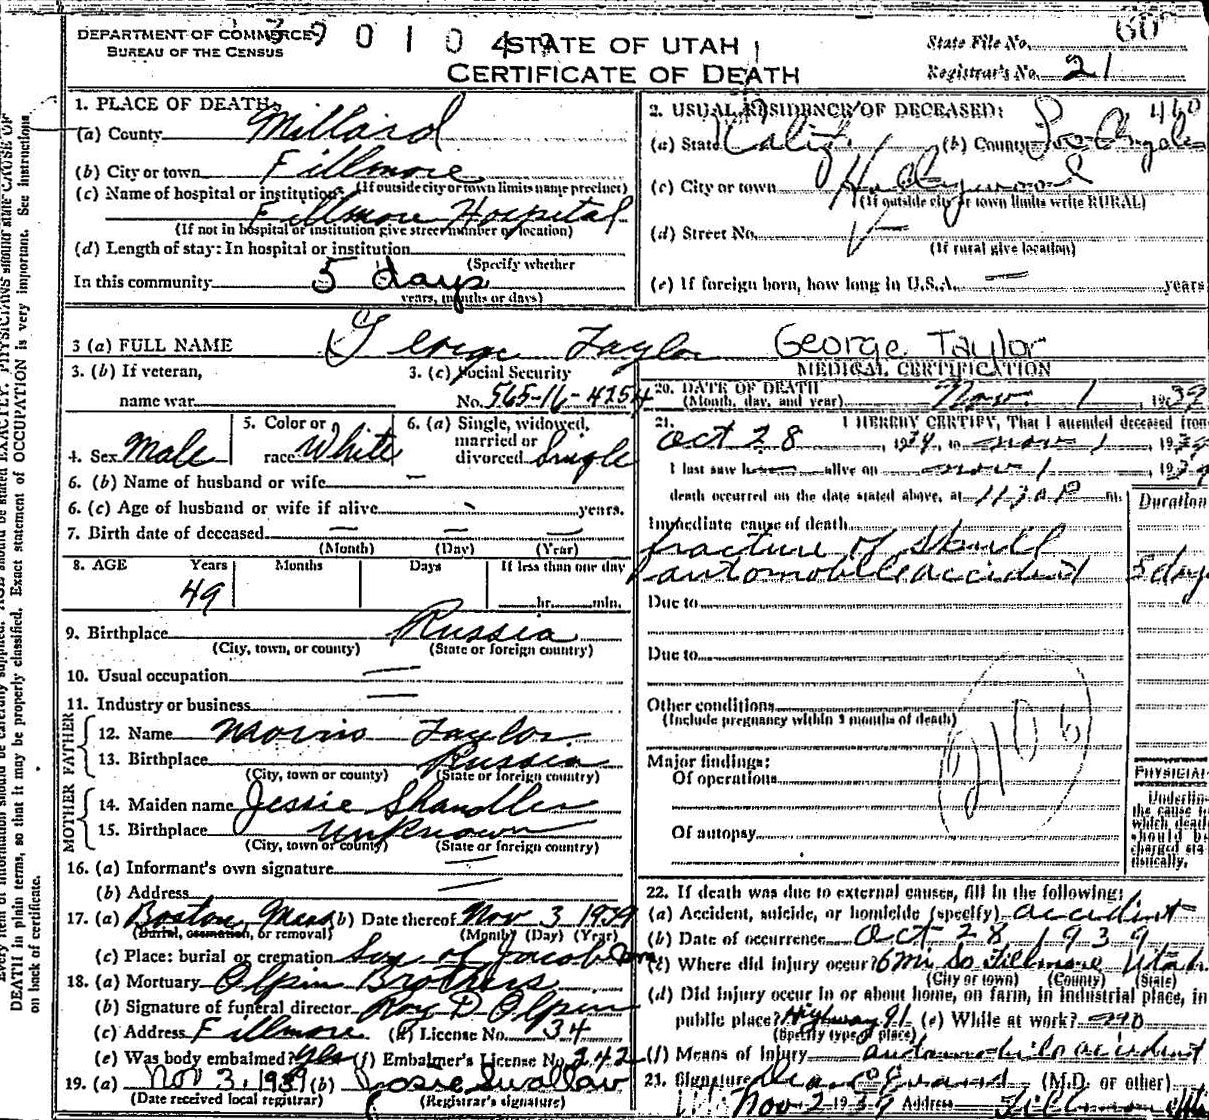 DEPARTMENT OF COMMERCE
BUREAU OF THE CENSUS
3 9 0 1 0 4 9
STATE OF UTAH
CERTIFICATE OF DEATH
State File No. 60
Registrar's No. 21
1. PLACE OF DEATH:
(a) County Millard
(b) City or town Fillmore
(If outside city or town limits name precinct)
(c) Name of hospital or institution:
Fillmore Hospital
(If not in hospital or institution give street number or location)
(d) Length of stay: In hospital or institution
(Specify whether
In this community 5 days
years, months or days)
2. USUAL RESIDENCE OF DECEASED: 460
(a) State Calif. (b) County Los Angeles
(c) City or town Hollywood
(If outside city or town limits write RURAL)
(d) Street No.
(If rural give location)
(e) If foreign born, how long in U.S.A. — years
3 (a) FULL NAME George Taylor George Taylor
3. (b) If veteran,
name war
3. (c) Social Security
No. 565-16-4254
4. Sex Male
5. Color or
race White
6. (a) Single, widowed,
married or
divorced Single
6. (b) Name of husband or wife —
6. (c) Age of husband or wife if alive years.
7. Birth date of deceased — — —
(Month) (Day) (Year)
8. AGE Years Months Days If less than one day
49 hr. min.
9. Birthplace Russia
(City, town, or county) (State or foreign country)
10. Usual occupation —
11. Industry or business —
FATHER
12. Name Morris Taylor
13. Birthplace Russia
(City, town or county) (State or foreign country)
MOTHER
14. Maiden name Jessie Shandler
15. Birthplace unknown
(City, town or county) (State or foreign country)
16. (a) Informant's own signature —
(b) Address —
17. (a) Boston, Mass (b) Date thereof Nov 3 1939
(Burial, cremation, or removal) (Month) (Day) (Year)
(c) Place: burial or cremation Son of Jacob
18. (a) Mortuary Olpin Brothers
(b) Signature of funeral director Roy D Olpin
(c) Address Fillmore (d) License No. 34
(e) Was body embalmed? Yes (f) Embalmer's License No. 242
19. (a) Nov 3, 1939 (b) Josie Swallow
(Date received local registrar) (Registrar's signature)
MEDICAL CERTIFICATION
20. DATE OF DEATH
(Month, day, and year) Nov. 1, 1939
21. I HEREBY CERTIFY, That I attended deceased from
Oct 28, 1939, to Nov 1, 1939
I last saw h alive on Nov 1, 1939
death occurred on the date stated above, at 1130 P m.
Duration
Immediate cause of death
fracture of skull
automobile accident 5 days
Due to
Due to
Other conditions
(Include pregnancy within 3 months of death)
210b
Major findings:
Of operations
Of autopsy
PHYSICIAN
Underline
the cause to
which death
should be
charged sta-
tistically.
22. If death was due to external causes, fill in the following:
(a) Accident, suicide, or homicide (specify) accident
(b) Date of occurrence Oct 28 1939
(c) Where did injury occur? 6 mi So Fillmore Utah
(City or town) (County) (State)
(d) Did injury occur in or about home, on farm, in industrial place, in
public place? Highway 91 (e) While at work? no
(Specify type of place)
(f) Means of Injury automobile accident
23. Signature Evans (M.D. or other)
Nov 2 1939 Address Fillmore Utah
DEATH in plain terms, so that it may be properly classified. Exact statement of OCCUPATION is very important. See instructions
on back of certificate.